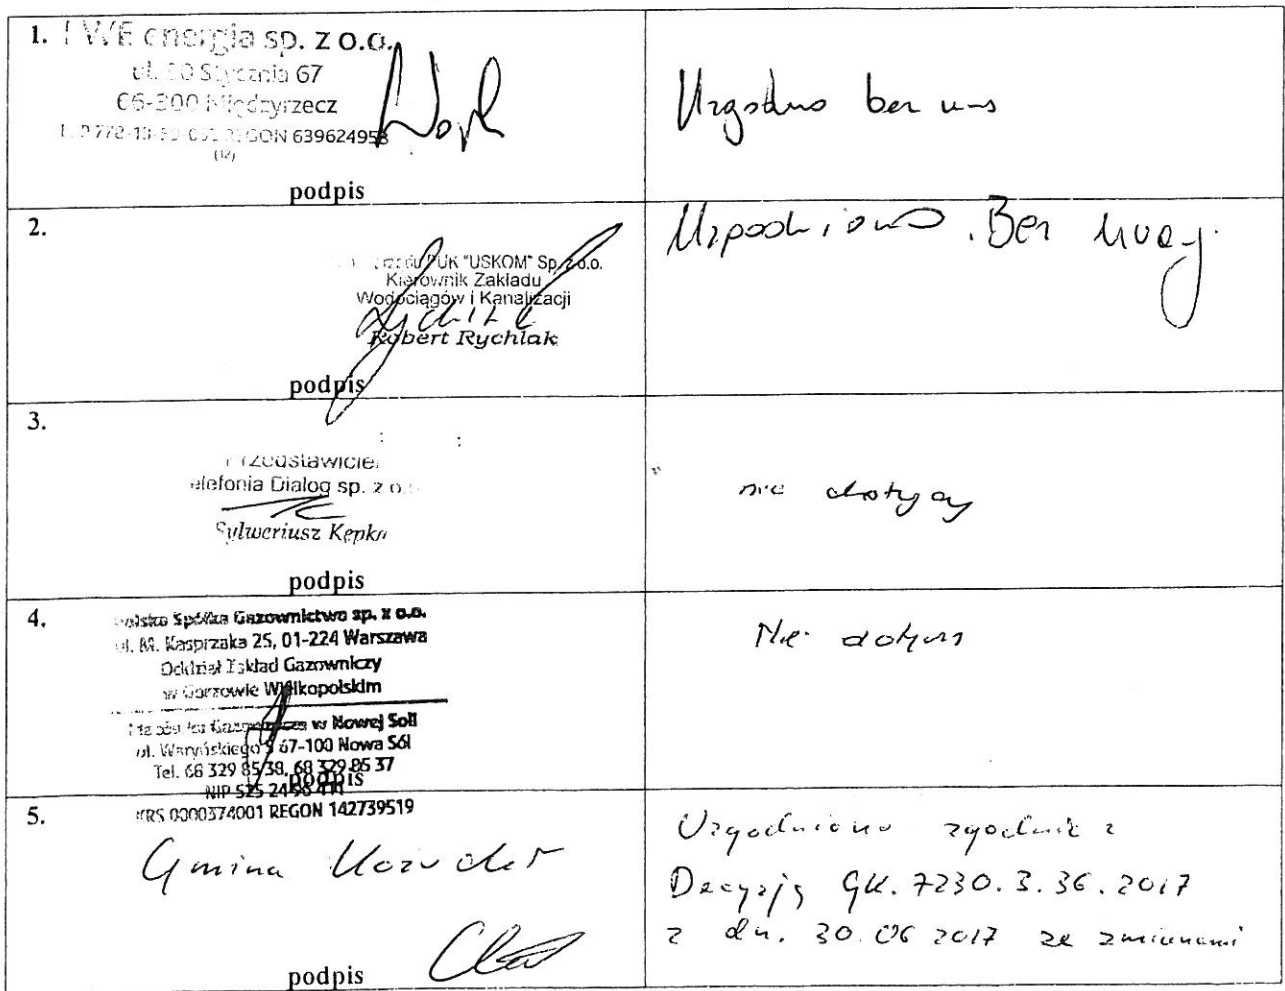 1. EWE energia sp. z o.o.
ul. 30 Stycznia 67
66-300 Międzyrzecz
REGON 639624953
(12)
podpis
Uzgodniono bez uwag
2.
PUK "USKOM" Sp. z o.o.
Kierownik Zakładu
Wodociągów i Kanalizacji
Robert Rychlak
podpis
Uzgodniono. Bez uwag.
3.
Przedstawiciel
Telefonia Dialog sp. z o.o.
Sylweriusz Kępka
podpis
nie dotyczy
4.
Polska Spółka Gazownictwa sp. z o.o.
ul. M. Kasprzaka 25, 01-224 Warszawa
Oddział Zakład Gazowniczy
w Gorzowie Wielkopolskim
w Nowej Soli
ul. Waryńskiego 9 67-100 Nowa Sól
Tel. 68 329 85 38, 68 329 85 37
NIP 525 24 96 411
podpis
KRS 0000374001 REGON 142739519
Nie dotyczy
5.
Gmina Kożuchów
podpis
Uzgodniono zgodnie z
Decyzją GK.7230.3.36.2017
z dn. 30.06 2017 ze zmianami